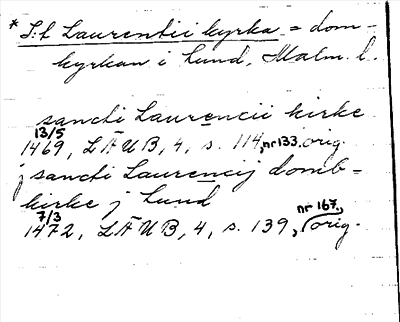 * S:t Laurentii kyrka = dom-
kyrkan i Lund, Malm. l.
sancti Laurencii kirke
13/5
1469, LÄUB, 4, s. 114, nr 133. orig.
j sancti Laurencij domb=
kirke j Lund
7/3
1472, LÄUB, 4, s. 139, nr 167., orig.